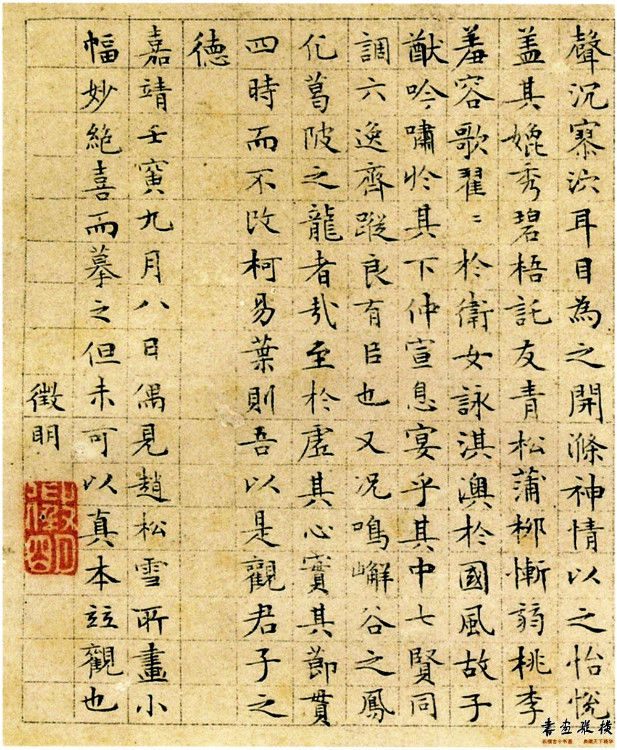 聲沉寥泬耳目為之開滌神情以之怡悅
蓋其媲秀碧梧託友青松蒲柳慚弱桃李
羞容歌翟〻於衛女詠淇澳於國風故子
猷吟嘯於其下仲宣息宴乎其中七賢同
調六逸齊蹤良有㠯也又況鳴嶰谷之鳳
化葛陂之龍者哉至於虛其心實其節貫
四時而不改柯易葉則吾以是觀君子之
德
嘉靖壬寅九月八日偶見趙松雪所畫小
幅妙絕喜而摹之但未可以真本竝觀也
徵明
徵明
書畫縱橫